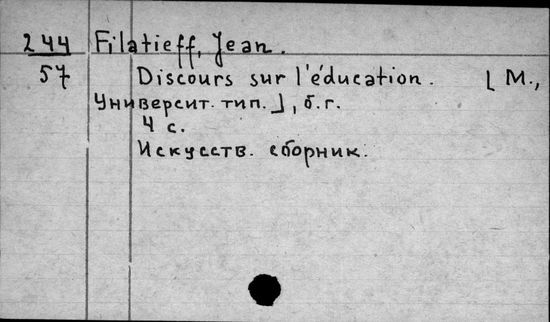 244 Filatieff, Jean.
57 Discours sur l'éducation. [М.,
Университ. тип.], б.г.
4 с.
Искусств. сборник.